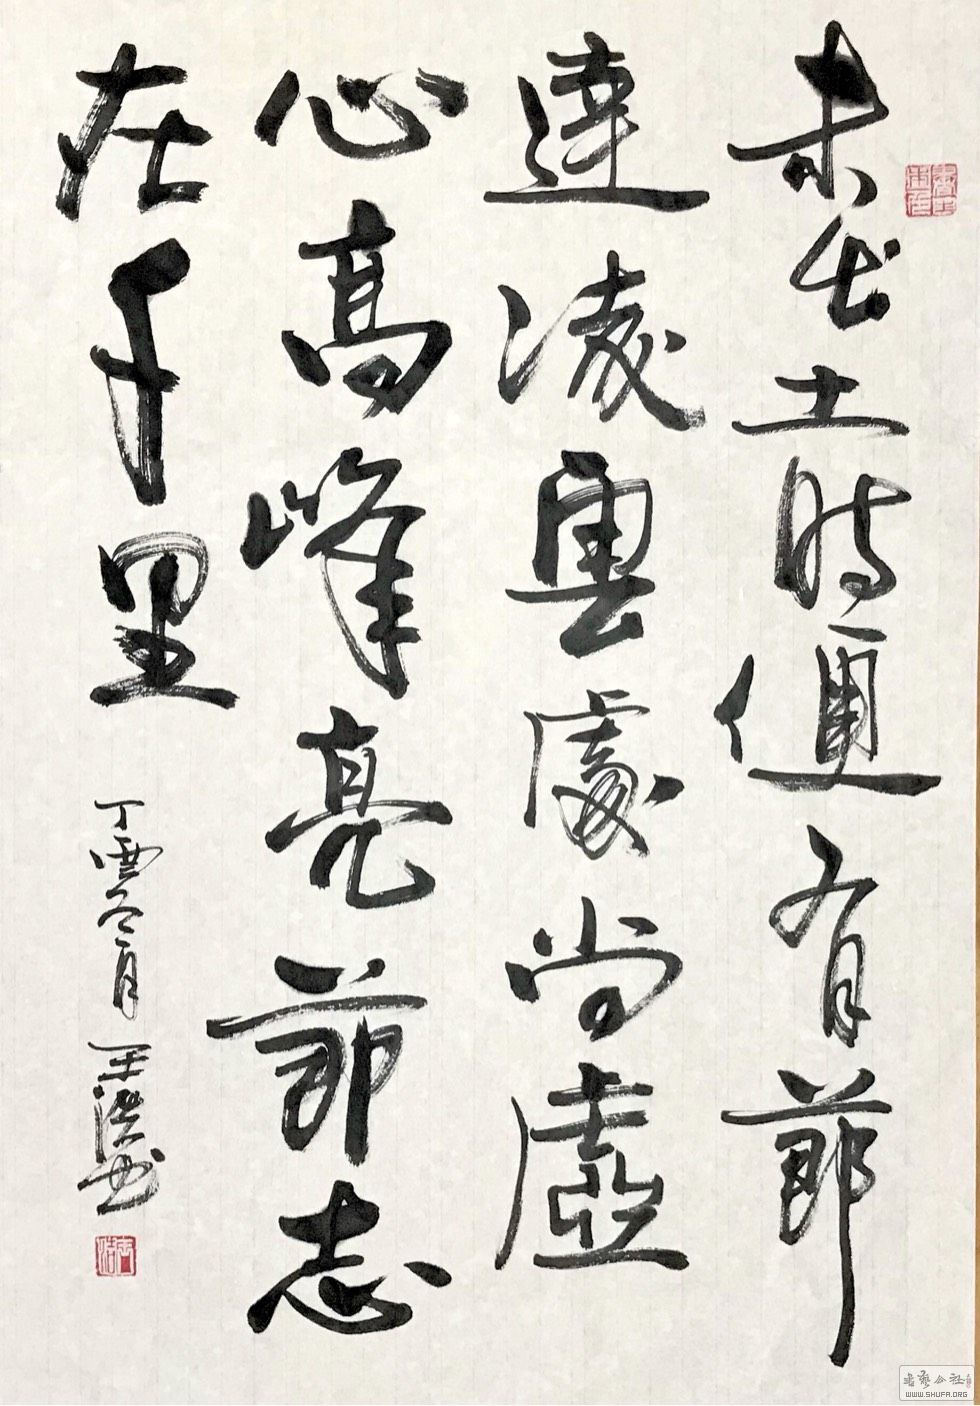 未出土时便有節
達凌雲處尚虛
心高峰亮節志
在千里
丁酉冬月
書藝公社
WWW.SHUFA.ORG